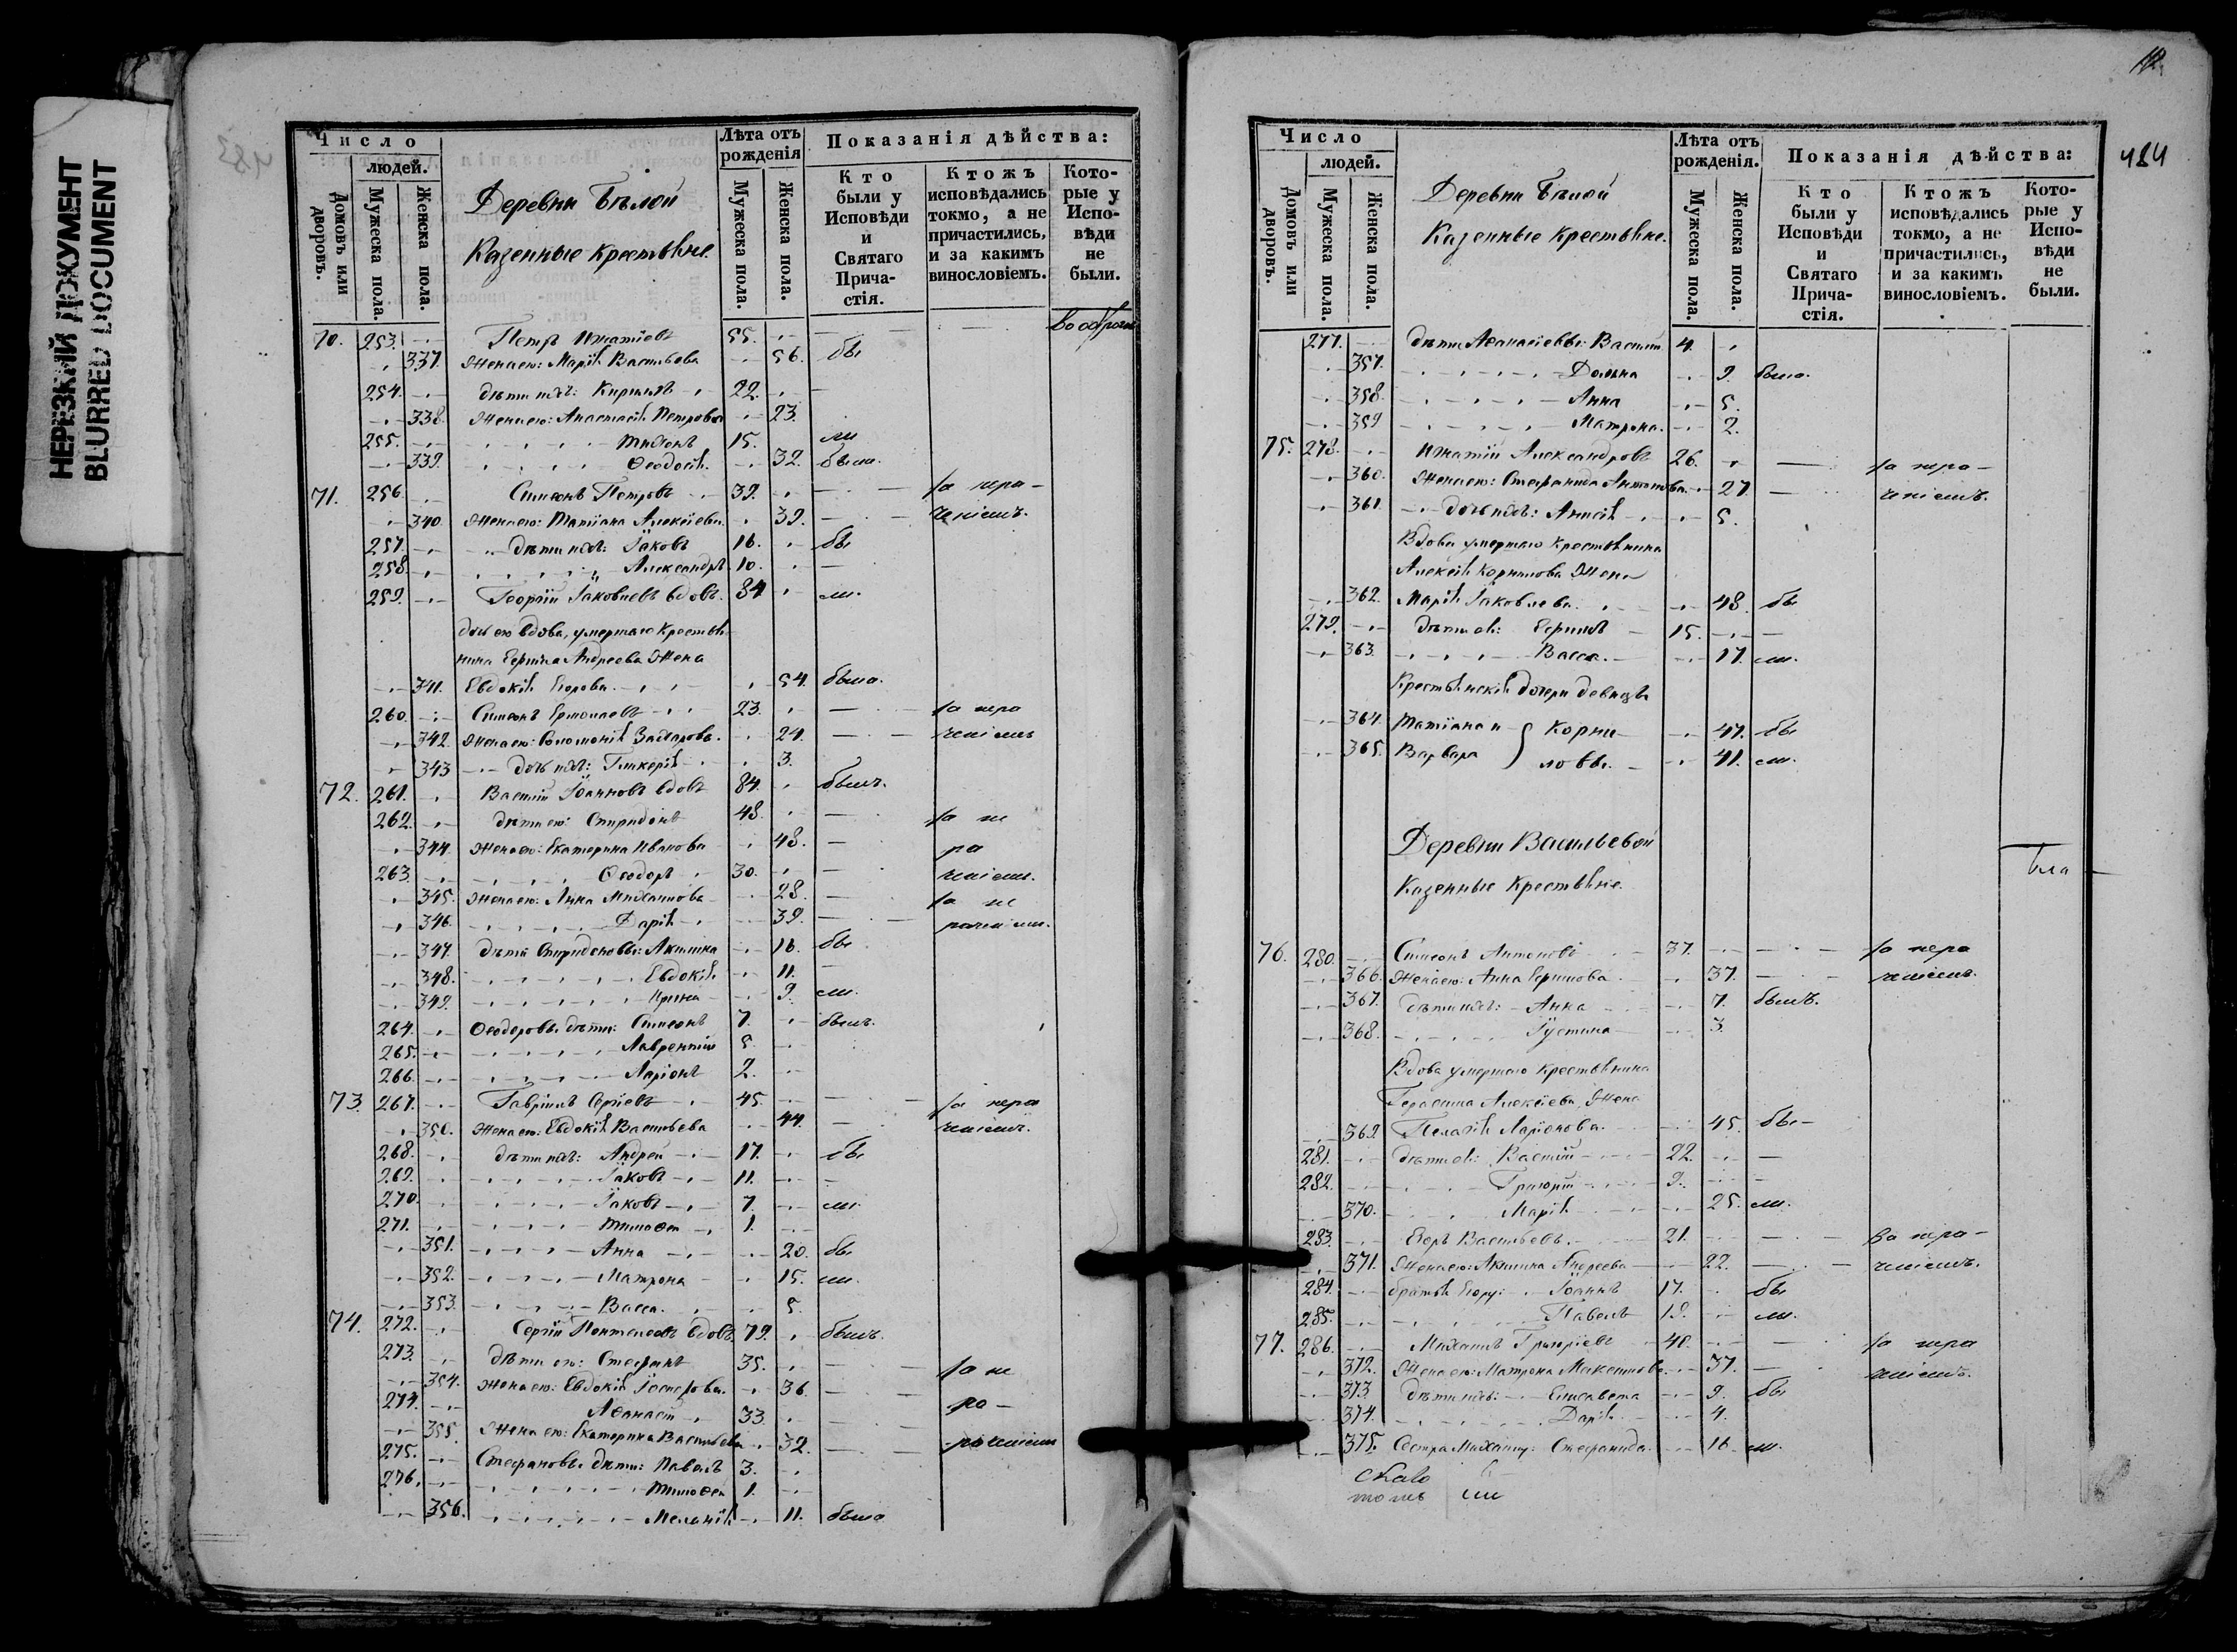 НЕРЕЗКИЙ ДОКУМЕНТ
BLURRED DOCUMENT
Число
людей.
Домовъ или дворовъ.
Мужеска пола.
Женска пола.
Деревни Бѣлой
Казенные крестьяне.
Лѣта отъ рожденія
Мужеска пола.
Женска пола.
Показанія дѣйства:
Кто были у Исповѣди и Святаго Причастія.
Ктожъ исповѣдались токмо, а не причастились, и за какимъ винословіемъ.
Которые у Исповѣди не были.
70. 253. Петръ Игнатіевъ 55.
337. Жена его: Марія Васильева 56. бы
254. дѣти ихъ: Кириллъ 22.
338. Жена его: Анастасія Петрова 23.
255. Тихонъ 15. ли
339. Ѳеодосія 32. была.
71. 256. Симеонъ Петровъ 39. за нера-
340. Жена его: Татіана Алексіева. 39.ченіемъ.
257. дѣти ихъ: Іаковъ 16. бы
258. Александръ 10.
259. Георгій Іаковлевъ вдовъ. 84 ли.
дочь его вдова, умершаго крестья-
нина Ефрема Андреева Жена
341. Евдокія Егорова 54. была.
260. Симеонъ Ермолаевъ 23. за нера
342. Жена его: Соломонія Захарова. 24. ченіемъ
343 дочь ихъ: Гликерія 3.
72. 261. Василій Іоанновъ вдовъ 84. былъ.
262. дѣти его: Спиридонъ 48. за не
344. Жена его: Екатерина Иванова 48. ра
263. Ѳеодоръ 30. ченіем.
345. Жена его: Анна Михаилова 28. за не
346. Дарія 39. раченіем.
347. дѣти Спиридоновы: Акилина 16. бы
348. Евдокія 11.
349. Ирина 9. ли.
264. Ѳеодоровы дѣти: Симеонъ 7. былъ.
265. Лаврентій 5.
266. Ларіонъ 2.
73. 267. Гавріилъ Сергіевъ 45. за нера
350. Жена его: Евдокія Васильева 44. ченіемъ.
268. дѣти ихъ: Андрей 17. бы
269. Іаковъ 11.
270. Іаковъ 7. ли.
271. Тимоѳей 1.
351. Анна 20. бы
352. Матрона 15. ли.
353. Васса 5.
74. 272. Сергій Понтелеевъ вдовъ. 79. былъ.
273. дѣти его: Стефанъ 35. за не
354. Жена его: Евдокія 36.
274. Аѳанасій 33. ра-
355. Жена его: Екатерина Васильева 32. раченіем
275. Стефановы дѣти: Павелъ 3.
276. Тимоѳей 1.
356. Меланія 11. была
484
Число
людей.
Домовъ или дворовъ.
Мужеска пола.
Женска пола.
Деревни Бѣлой
Казенные крестьяне.
Лѣта отъ рожденія.
Мужеска пола.
Женска пола.
Показанія дѣйства:
Кто были у Исповѣди и Святаго Причастія.
Ктожъ исповѣдались токмо, а не причастились, и за какимъ винословіемъ.
Которые у Исповѣди не были.
277. дѣти Аѳанасіевы: Василій 4.
357. 9. была.
358. Анна 5.
359 Матрона. 2.
75. 278. Игнатій Александровъ 26. за нера-
360. Жена его: Стефанида Антонова. 27. ченіемъ.
361. дочь ихъ: Анисія 5.
Вдова умершаго крестьянина
Алексія Корнилова Жена
362. Марія Іаковлева 48. бы
279. дѣти ея: Ефремъ 15.
363. Васса. 17. ли.
Крестьянскія дочери девицы
364. Татіана и } Корни- 47. бы
365. Варвара } ловы. 41. ли.
Деревни Васильевой
Казенные крестьяне.
76. 280. Симеонъ Антоновъ 37. за нера
366. Жена его: Анна Ефимова 37. ченіемъ.
367. дѣти ихъ: Анна 7. былъ.
368. Іустина 3.
Вдова умершаго крестьянина
Герасима Алексіева, Жена
369 Пелагія Ларіонова. 45. бы-
281. дѣти ея: Василій 22.
282. Григорій 9.
370. Марія 25. ли.
283. Егоръ Васильевъ. 21. за нера-
371. Жена его: Акилина Андреева 22. ченіемъ.
284. братья Егору: Іоаннъ 17. бы
285. Павелъ 13. ли.
77. 286. Михаилъ Григоріевъ 40. за нера
372. Жена его: Матрона Максимова. 37. ченіемъ.
373. дѣти ихъ: Елисавета 9. бы
374. Дарія 4.
375. Сестра Михаилу: Стефанида. 16 ли.